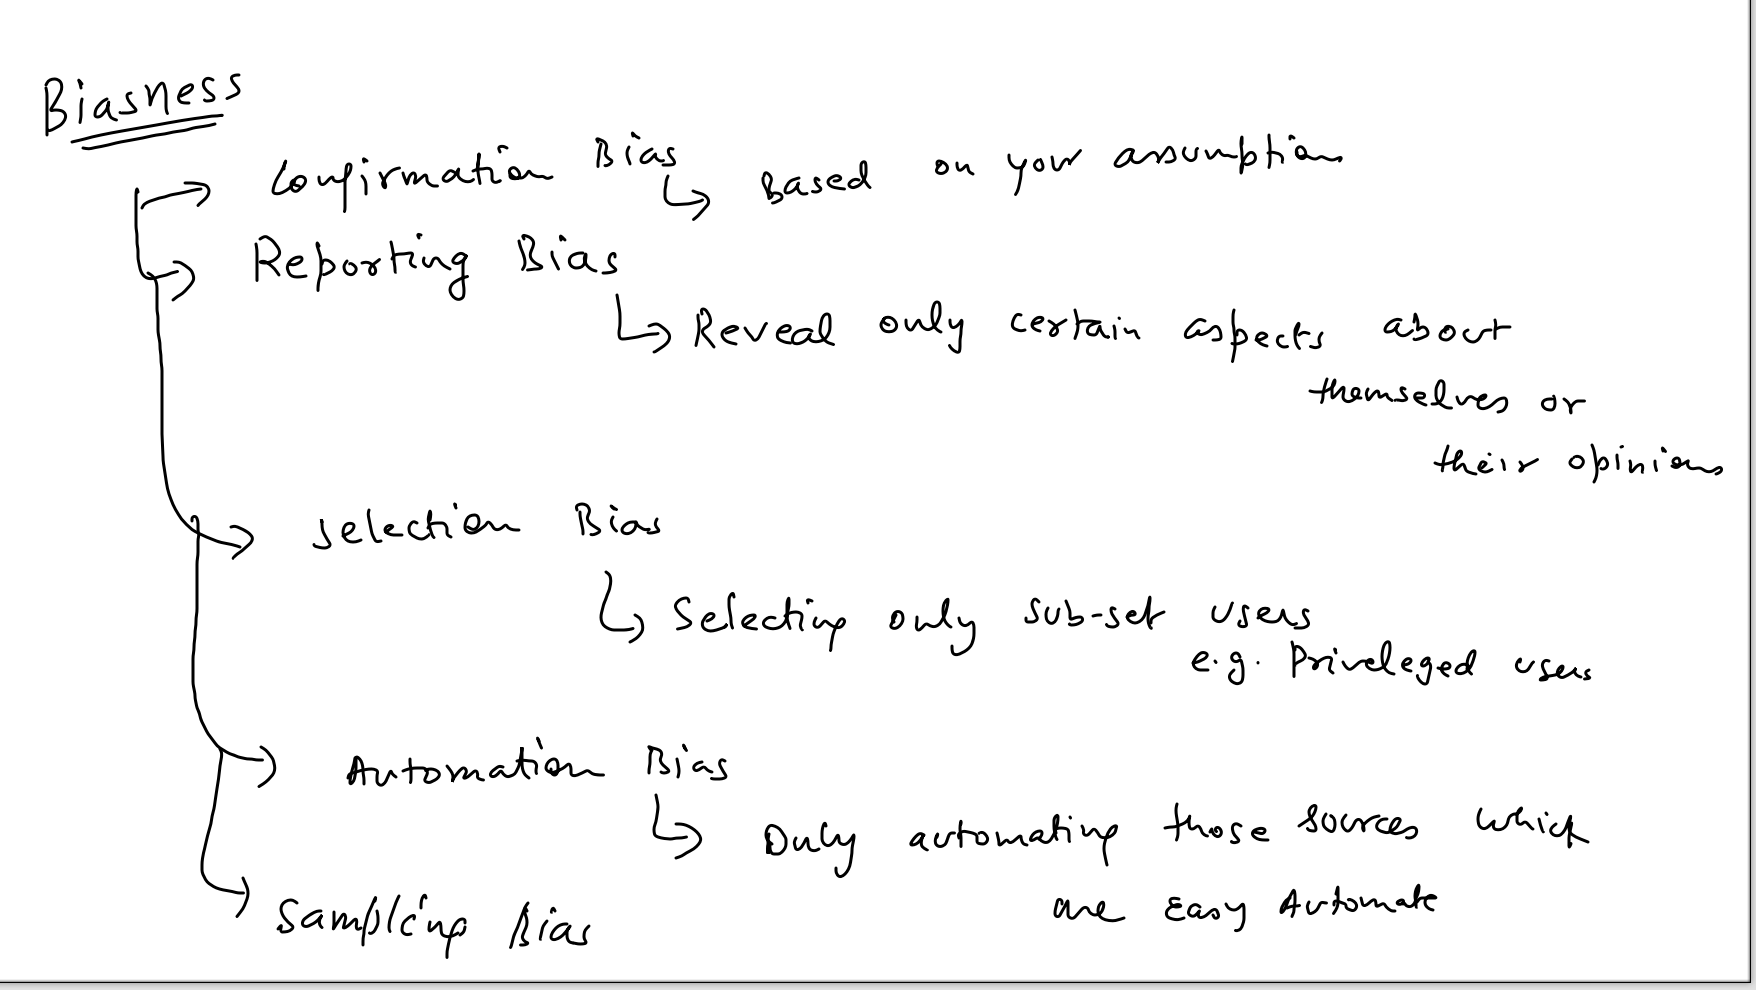 Biasness
Confirmation Bias
Based on your assumption
Reporting Bias
Reveal only certain aspects about
themselves or
their opinions
Selection Bias
Selecting only sub-set users
e.g. Priveleged users
Automation Bias
Only automating those sources which
are Easy Automate
Sampling Bias